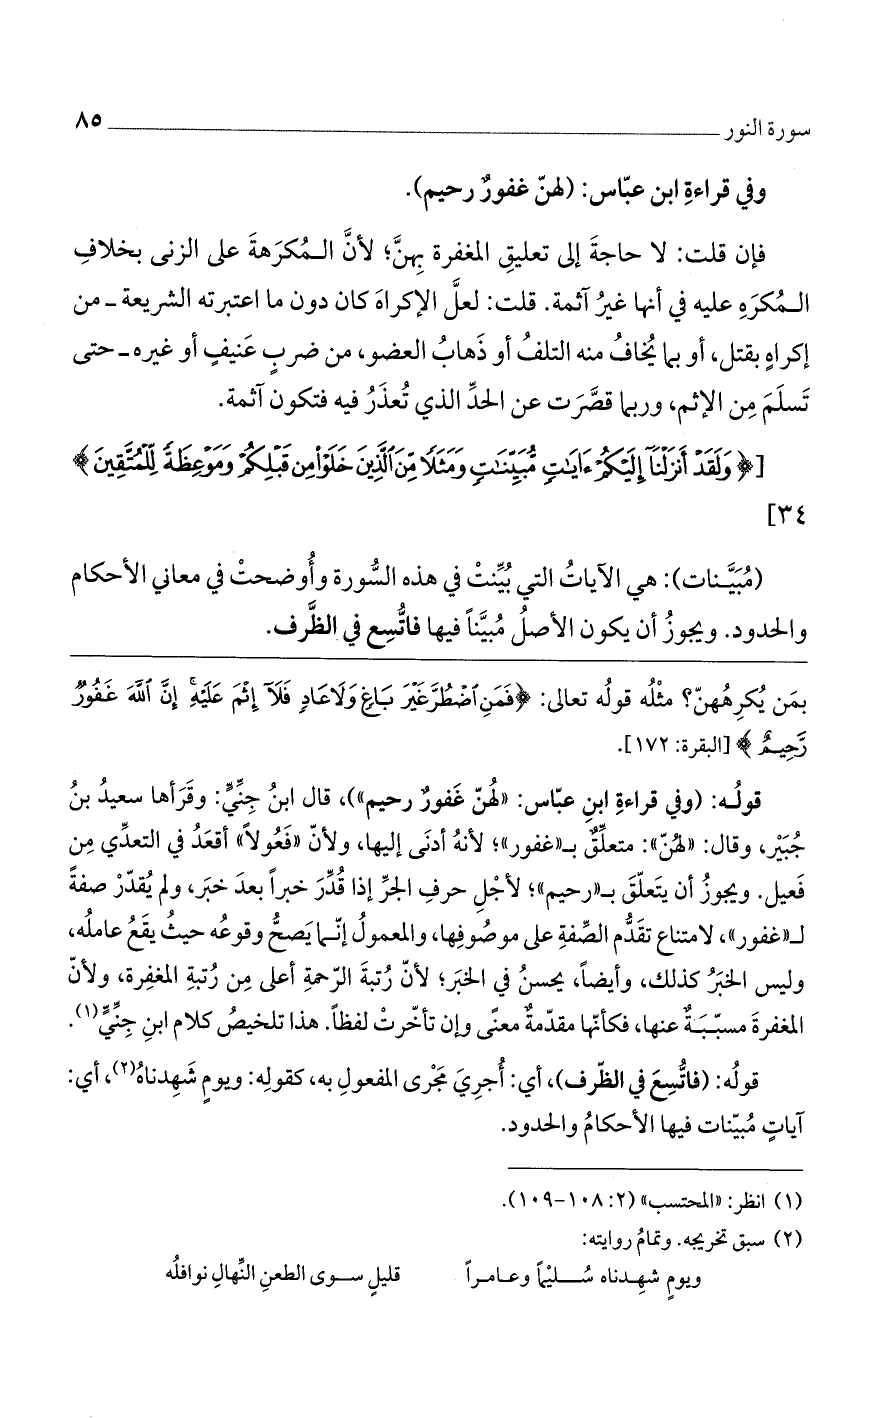 سورة النور ٨٥
وفي قراءةِ ابن عبّاس: (لهنّ غفورٌ رحيم).
فإن قلت: لا حاجةَ إلى تعليقِ المغفرة بِهنَّ؛ لأنَّ المُكرَهةَ على الزنى بخلافِ
المُكرَهِ عليه في أنها غيرُ آثمة. قلت: لعلَّ الإكراهَ كان دون ما اعتبرته الشريعة ـ من
إكراهٍ بقتل، أو بما يُخافُ منه التلفُ أو ذَهابُ العضو، من ضربٍ عَنيفٍ أو غيره ـ حتى
تَسلَمَ مِن الإثم، وربما قصَّرَت عن الحدِّ الذي تُعذَرُ فيه فتكون آثمة.
[﴿ وَلَقَدْ أَنزَلْنَآ إِلَيْكُمْ ءَايَٰتٍ مُّبَيِّنَٰتٍ وَمَثَلًا مِّنَ ٱلَّذِينَ خَلَوْا۟ مِن قَبْلِكُمْ وَمَوْعِظَةً لِّلْمُتَّقِينَ ﴾
٣٤]
(مُبَيَّنات): هي الآياتُ التي بُيِّنتْ في هذه السُّورة وأُوضحتْ في معاني الأحكام
والحدود. ويجوزُ أن يكون الأصلُ مُبيَّناً فيها فاتُّسِع في الظَّرف.
بمَن يُكرِهُهنّ؟ مثْلُه قولُه تعالى: ﴿فَمَنِ ٱضْطُرَّ غَيْرَ بَاغٍ وَلَا عَادٍ فَلَآ إِثْمَ عَلَيْهِ ۚ إِنَّ ٱللَّهَ غَفُورٌ
رَّحِيمٌ ﴾ [البقرة: ١٧٢].
قولُه: (وفي قراءةِ ابنِ عبّاس: «لهُنّ غَفورٌ رحيم»)، قال ابنُ جِنِّيٍّ: وقَرَأها سعيدُ بنُ
جُبَيْر، وقال: «لهُنّ»: متعلِّقٌ بـ«غفور»؛ لأنهُ أدنَى إليها، ولأنّ «فَعُولاً» أقعَدُ في التعدِّي مِن
فَعيل. ويجوزُ أن يَتعلّقَ بـ«رحيم»؛ لأجْلِ حرفِ الجرِّ إذا قُدِّرَ خبراً بعدَ خبَر، ولم يُقدّرْ صفةً
لـ«غفور»، لامتناع تقدُّم الصِّفةِ على موصُوفِها، والمعمولُ إنّما يَصحُّ وقوعُه حيثُ يقَعُ عامله،
وليس الخبَرُ كذلك، وأيضاً، يحسنُ في الخبَر؛ لأنّ رُتبةَ الرّحمةِ أعلى مِن رُتبةِ المغفِرة، ولأنّ
المغفرةَ مسبّبَةٌ عنها، فكأنّها مقدّمةٌ معنًى وإن تأخّرتْ لفظاً. هذا تلخيصُ كلام ابنِ جِنِّيٍّ(١).
قولُه: (فاتُّسِعَ في الظّرف)، أي: أُجرِيَ مَجْرى المفعولِ به، كقولِه: ويومٍ شَهِدناهُ(٢)، أي:
آياتٍ مُبيّنات فيها الأحكامُ والحدود.
(١) انظر: «المحتسب» (٢: ١٠٨-١٠٩).
(٢) سبق تخريجه. وتمامُ روايته:
ويومٍ شهِدناه سُليْماً وعامراً قليلٍ سوى الطعنِ النِّهالِ نوافلُه